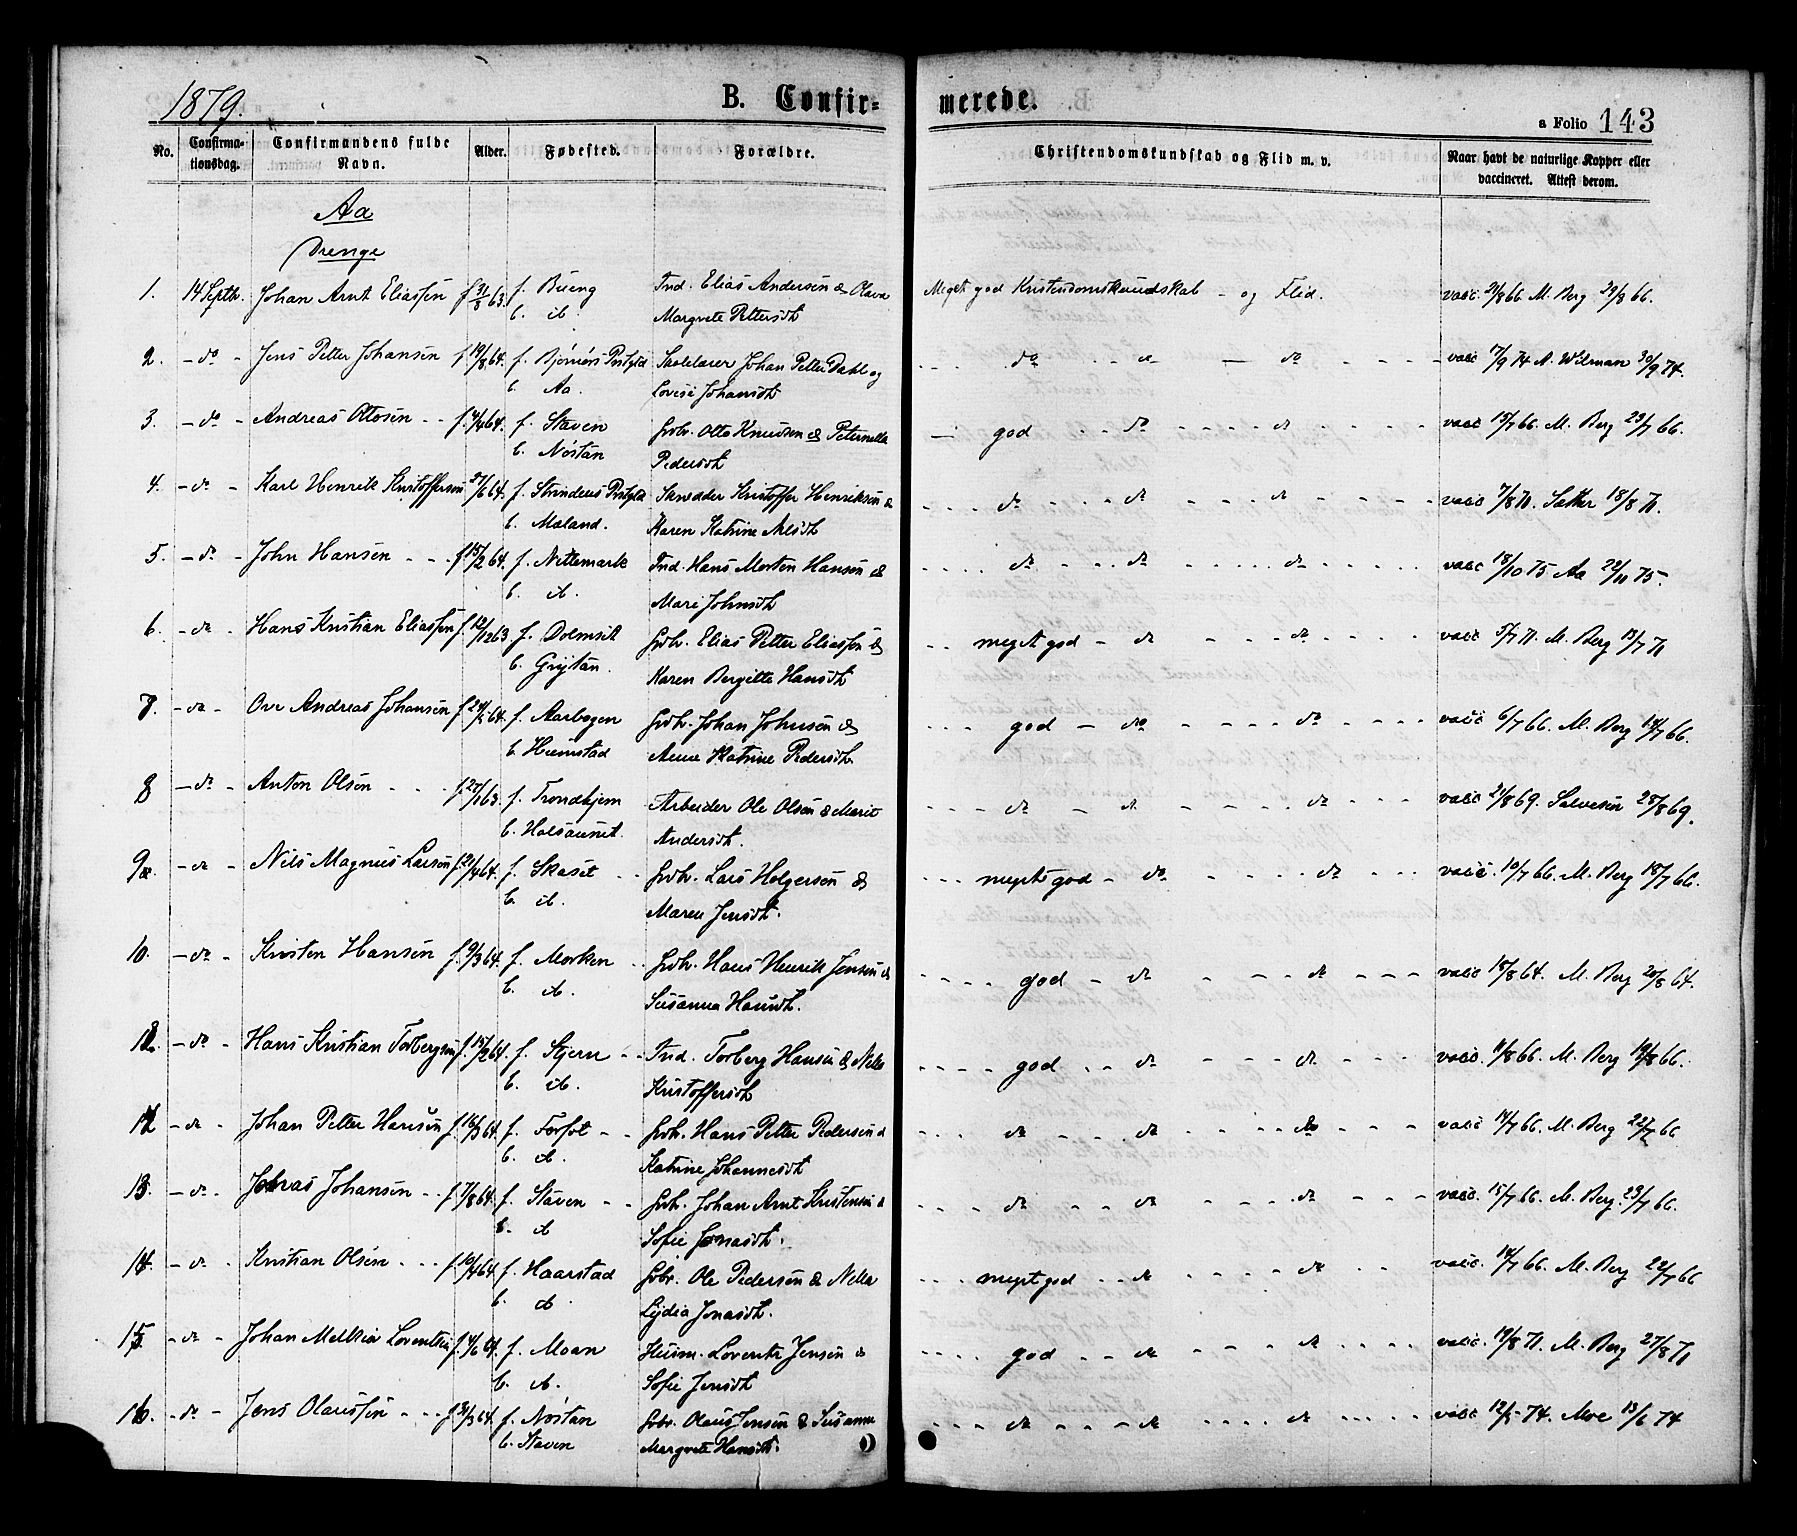 1879.
B. Confir-
merede.
a Folio 143
No.
Confirma-
tionsdag.
Confirmandens fulde
Navn.
Alder.
Fødested.
Forældre.
Christendomskundskab og Flid m. v.
Naar havt de naturlige Kopper eller
vaccineret. Attest derom.
Aa
Drenge
1. 14 Septb. Johan Arnt Eliassen f. 31/8 63. f. Bueng Ind. Elias Andersen & Olava Meget god Kristendomskundskab - og Flid. vacc. 21/8 66 M. Berg 29/8 66.
b. d. Margrete Pettersdt.
2. - do - Jens Petter Johansen f. 19/8 64. f. Bjørnørs Prstgld Skolelærer Johan Petter Dahl og do - d - do vacc 17/9 74 A. Wilman 30/9 74.
b. Aa. Lovise Johansdt
3. - do - Andreas Ottosen f. 4/4 64. f. Staven Grbr. Otto Knudsen & Peternella god - do - d vacc 15/7 66. M. Berg 23/7 66.
b. Nøstan Pedersdt
4. - do - Karl Henrik Kristoffersen 27/6 64. f. Strindens Prstgld Skrædder Kristoffer Henriksen & do - d - d vacc 7/8 71. Sather 18/8 71.
b. Moland. Karen Katrine Nilsdt
5. - do - John Hansen f. 15/2 64. f. Nittemark Ind. Hans Morten Hansen & do - do - do vacc 18/10 75 Aa 22/11 75.
b. d. Mari Johnsdt
6. - do - Hans Kristian Eliassen f. 12/12 63 f. Dolmsit Grbr. Elias Petter Eliassen & meget god - d - d vacc 5/7 71. M. Berg 13/7 71
b. Grøjtan. Karen Bergitte Hansdt
7. - do - Ove Andreas Johansen f. 24/2 64. f. Aarbogen Grbr. Johan Johnsen & god - do - do vacc 6/7 66. M. Berg 14/7 66.
b. Humstad Anne Katrine Pedersdt.
8 - do - Anton Olsen f. 27/1 63. f. Trondhjem Arbeider Ole Olsen & Marit do - d - do vacc 21/8 69. Salvesen 28/8 69.
b. Halsaunet. Andersdt.
9. - do - Nils Magnus Larsen f. 21/4 64. f. Skaset Grbr. Lars Holgersen & meget god - do - do vacc. 10/7 66. M. Berg 18/7 66.
b. d. Maren Jensdt.
10. - do - Kristen Hansen f. 9/3 64. f. Morken Grbr. Hans Henrik Jensen & god - d - d vacc 18/8 64. M. Berg 20/8 64.
b. d. Susanna Hansdt.
- do - Hans Kristian Torbergsen f. 15/2 64. f. Stjern Ind. Torberg Hansen & Nella god - do - do vacc. 11/8 66. M. Berg 19/8 66.
b. d. Kristoffersdt
- do - Johan Petter Hansen f. 16/3 64. f. Forfot Grbr. Hans Petter Pedersen & do - do - do vacc 14/7 66. M. Berg 22/7 66
b. d. Katrine Johannesdt
13. - do - Johras Johansen f. 7/8 64. f. Staven Grbr. Johan Arnt Kristensen & do - do - do vacc. 15/7 66. M. Berg. 23/7 66.
b. d Sofie Jonasdt.
14. - do - Kristian Olsen f. 10/4 64 f. Haarstad Grbr. Ole Pedersen & Nella meget god - d - do vacc. 14/7 66. M. Berg 22/7 66
b. d. Lydia Jonasdt.
15 - do - Johan Melkior Lorentsen f. 4/6 64. f. Moan Husm. Lorents Jensen & god - do - d vacc. 19/8 71. M. Berg 27/8 71
b. d. Sofie Jensdt
16. - do - Jens Olaussen f. 31/3 64. f. Nøstan Grbr. Olaus Jensen & Susanna do - do - do vacc 12/5 74. Moe 13/6 74
b. Staven Margrete Hansdt.